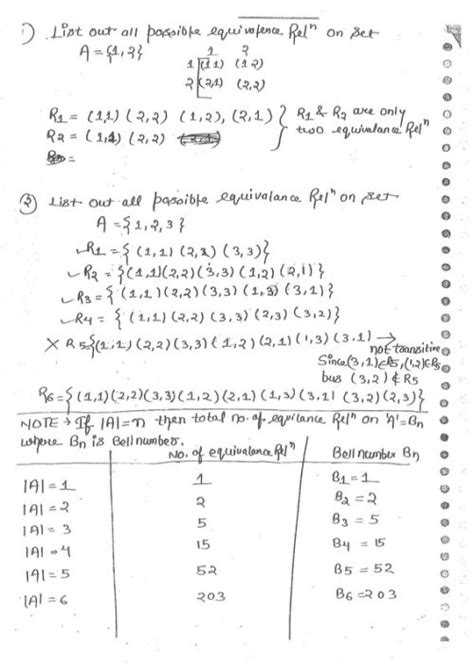 1) List out all possible equivalence Relⁿ on set
A = {1,2}
1 2
1 (1,1) (1 2)
2 (2,1) (2,2)
R1 = (1,1) (2,2) (1,2), (2,1) } R1 & R2 are only
R2 = (1,1) (2,2) two equivalance Relⁿ
=
2) List out all possible equivalance Relⁿ on set
A = {1,2,3}
R1 = { (1,1) (2,2) (3,3)}
R2 = {(1,1)(2,2)(3,3)(1,2)(2,1)}
R3 = { (1,1)(2,2)(3,3)(1,3)(3,1)}
R4 = { (1,1)(2,2)(3,3)(2,3)(3,2)}
× R5={(1,1)(2,2)(3,3)(1,2)(2,1)(1,3)(3,1) → not transitive
Since (3,1)∈R5,(1,2)∈R5
but (3,2)∉R5
R6={(1,1)(2,2)(3,3)(1,2)(2,1)(1,3)(3,1)(3,2)(2,3)}
NOTE → If |A|=n then total no. of equilance Relⁿ on 'A'=Bn
where Bn is Bell number.
No. of equivalance Relⁿ Bell number Bn
|A| = 1 1 B1 = 1
|A| = 2 2 B2 = 2
|A| = 3 5 B3 = 5
|A| = 4 15 B4 = 15
|A| = 5 52 B5 = 52
|A| = 6 203 B6 = 203